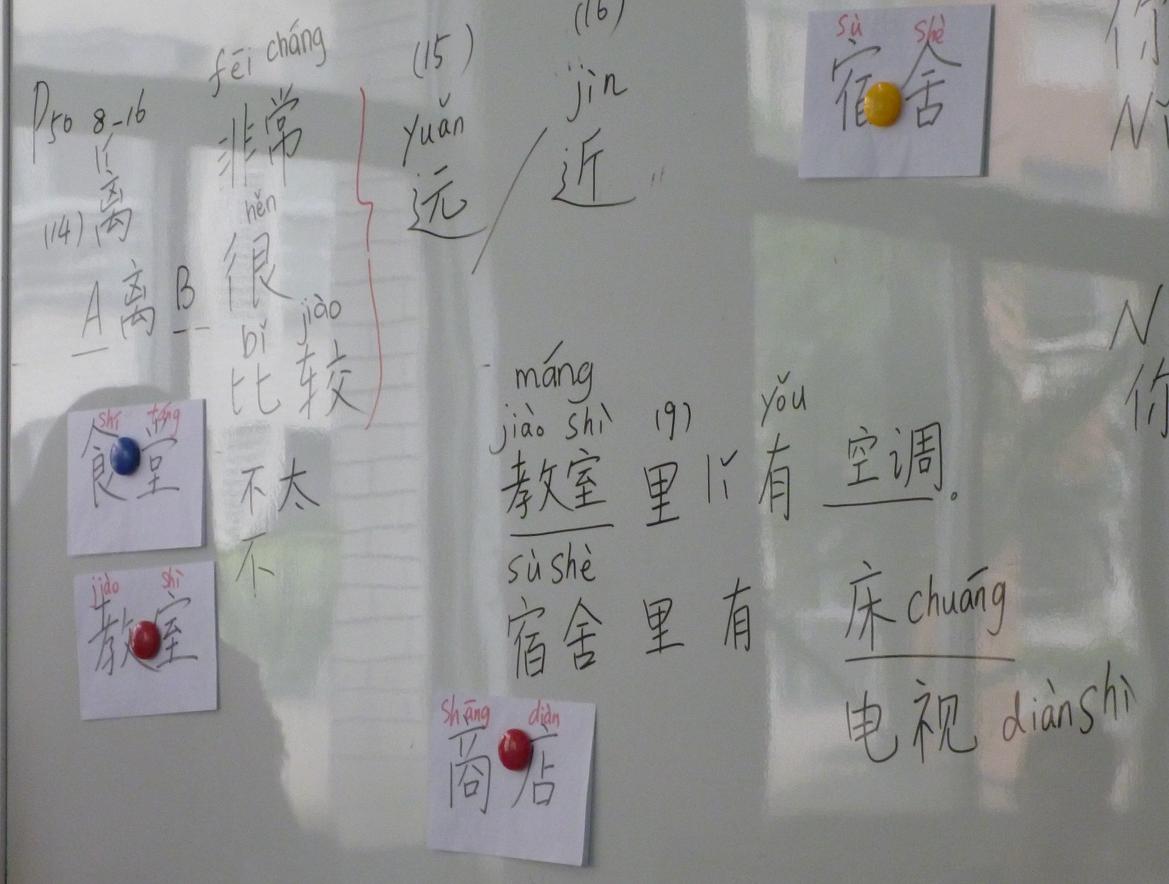 P50 8-16
lí
(14) 离
A 离 B
fēi cháng
非常
hěn
很
bǐ jiào
比较
不太
不
(15)
yuǎn
远
/
(16)
jìn
近
sù shè
宿舍
shí táng
食堂
jiào shì
教室
máng
jiào shì (9) yǒu
教室 里 lǐ 有 空调。
sù shè
宿舍 里 有 床 chuáng
电视 diànshì
shāng diàn
商店
你
N
N
你